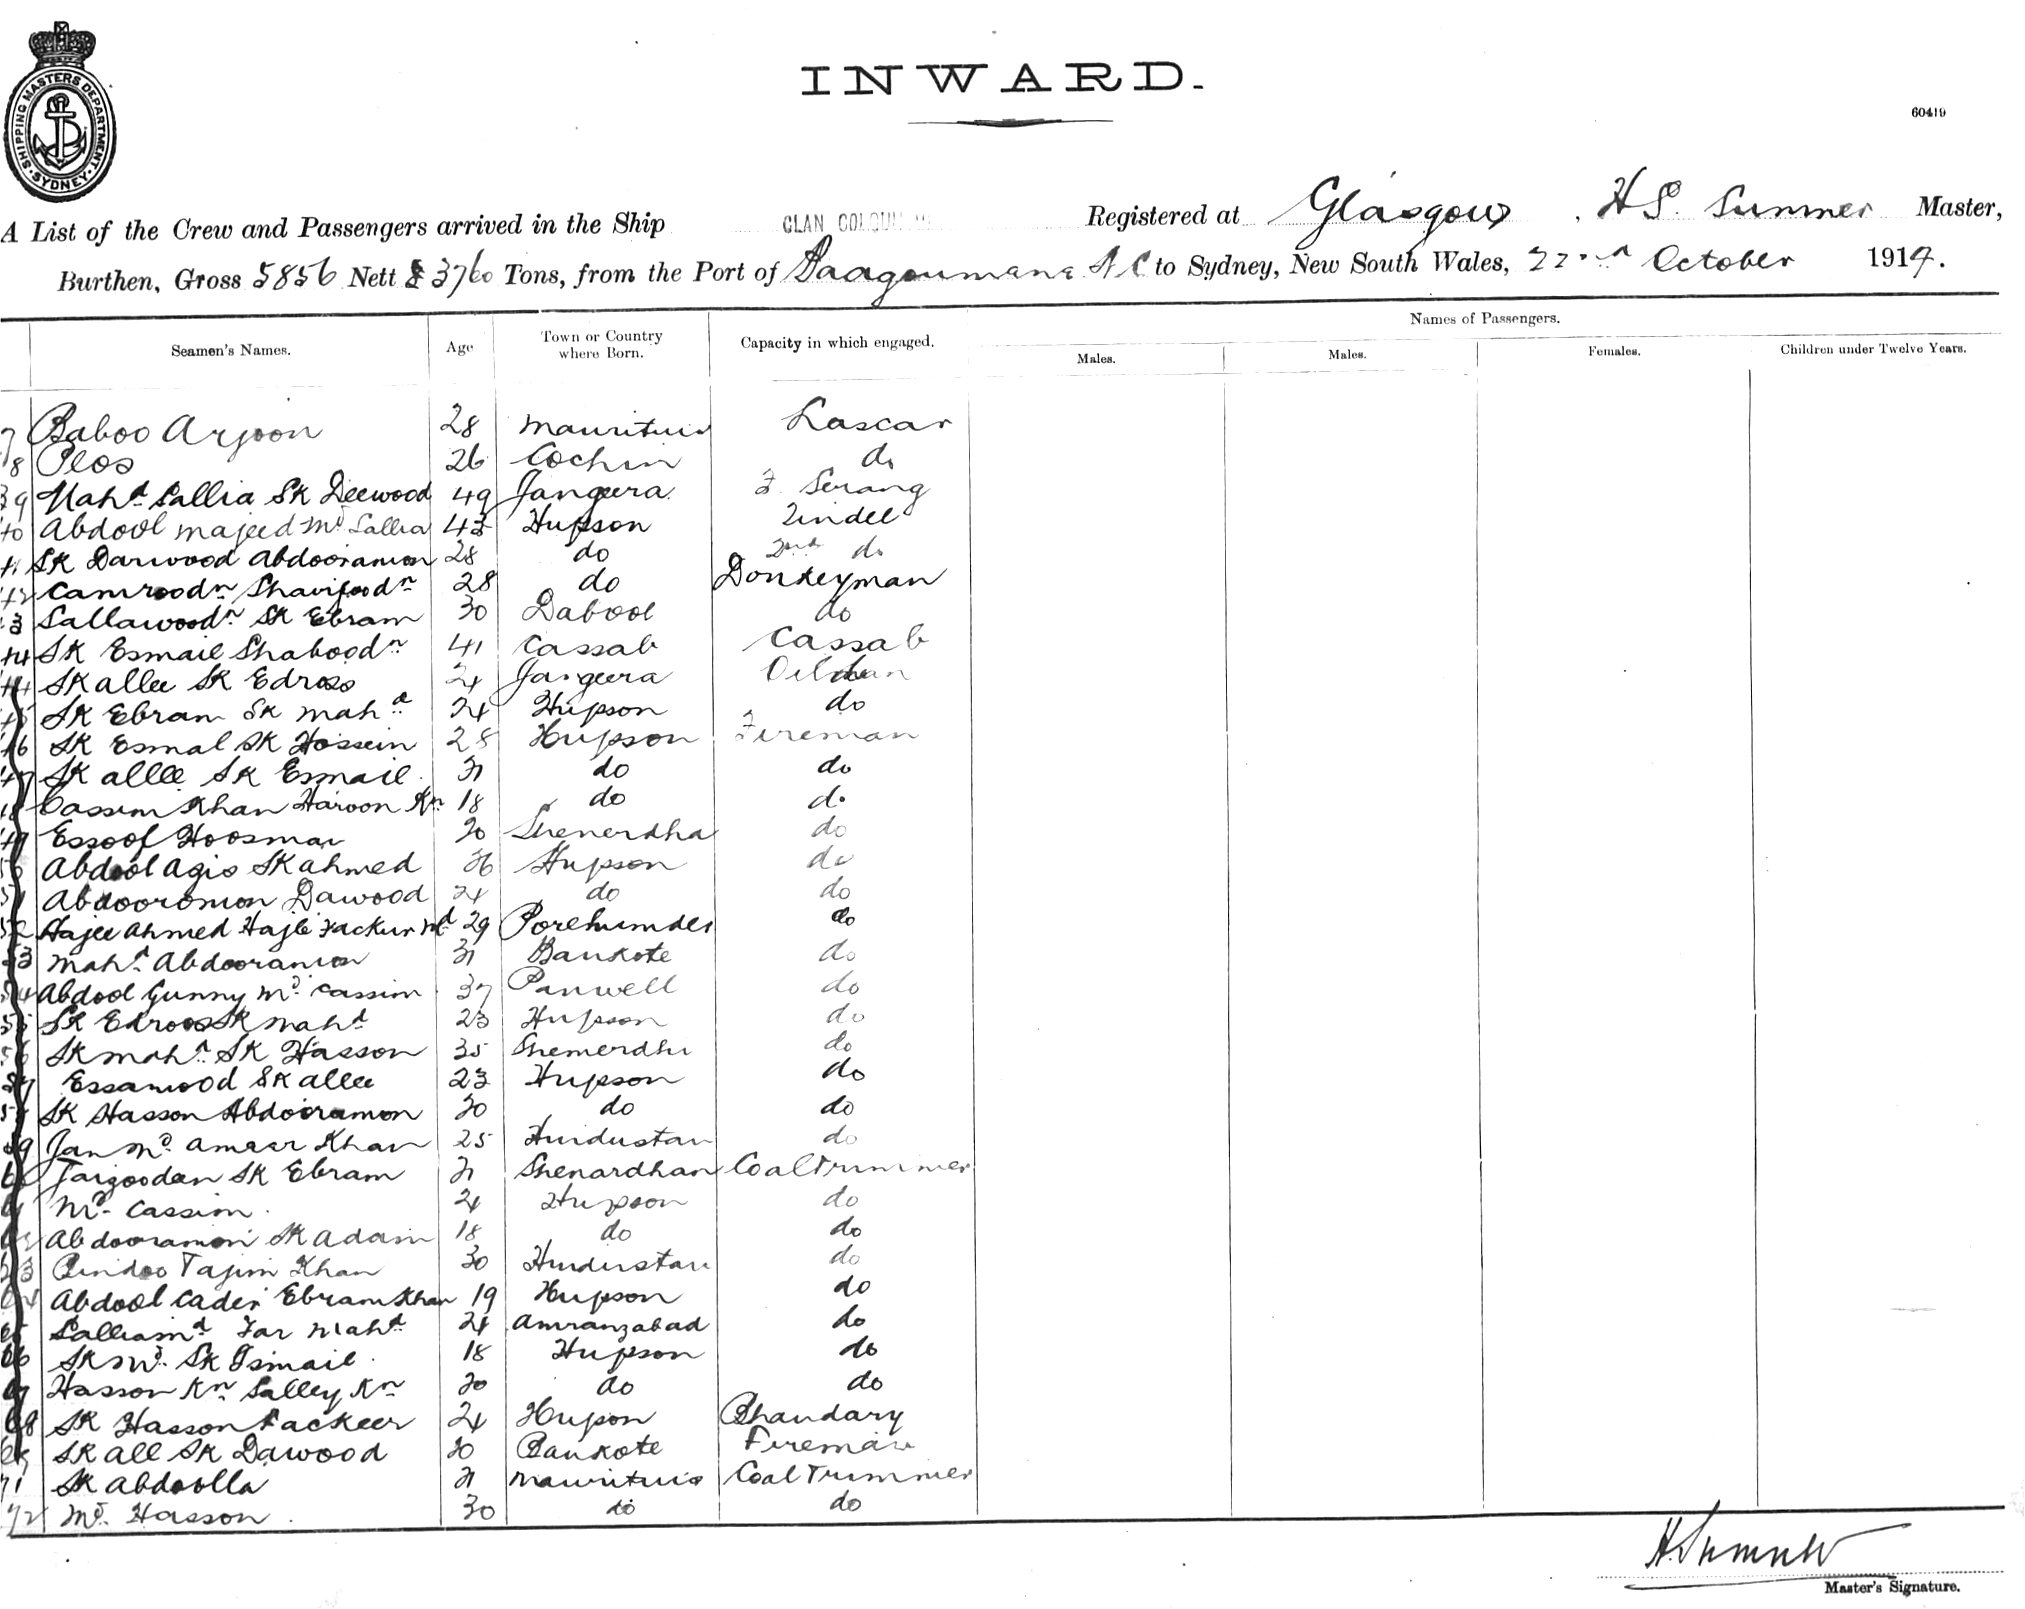 SHIPPING MASTERS DEPARTMENT
SYDNEY
INWARD.
60419
A List of the Crew and Passengers arrived in the Ship CLAN Registered at Glasgow. H S. Sumner Master,
Burthen, Gross 5856 Nett 3760 Tons, from the Port of to Sydney, New South Wales, 22nd October 1914.
Names of Passengers.
Seamen's Names. Age Town or Country where Born. Capacity in which engaged. Males. Males. Females. Children under Twelve Years.
Baboo Arjoon 28 Mauritius Lascar
8 Plos 26 Cochin do
39 Mahd Sallia SK Deewood 49 Jangeera F. Serang
40 Abdool Majeed Md Sallia 43 Hupson Tindel
41 SK Darwood Abdooramon 28 do 2nd do
42 Camroodn Sharifoodn 28 do Donkeyman
43 Sallawoodn SK Ebram 30 Dabool do
44 SK Esmail Shaboodn 41 Cassab Cassab
44 SK allee SK Edroos Jangeera Oilman
45 SK Ebram SK Mahd 24 Hupson do
46 SK Esmal SK Hossein 28 Hupson Fireman
47 SK allee SK Esmail do do
48 Cassim Khan Haroon Kn 18 do do
49 Essoof Hoosman Shenerdha do
50 Abdool Agis SK ahmed Hupson do
51 Abdooromon Dawood 24 do do
52 Hajee Ahmed Hajee Fackur Md 29 do
53 Mahd Abdooramon Bankote do
54 Abdool Gunny Md Cassim 37 Panwell do
55 SK Edroos SK Mahd 23 Hupson do
56 SK Mahd SK Hasson 35 Shemerdhi do
57 Essamood SK allee 23 Hupson do
58 SK Hasson Abdooramon do do
59 Jan Md Ameer Khan 25 Hindustan do
60 Taigoodan SK Ebram Shenardhan Coal Trimmer
61 Md Cassim Hupson do
62 Abdooramon SK Adam 18 do do
63 Pindoo Tajim Khan 30 Hindustan do
64 Abdool Cader Ebram Khan 19 Hupson do
65 Salliamd Far Mahd Amranzabad do
66 SK Md SK Ismail 18 Hupson do
67 Hasson Kn Salley Kn do do
68 SK Hasson Fackeer 24 Hupson Bhandary
SK All SK Dawood Bankote Fireman
71 SK Abdoolla Mauritius Coal Trimmer
72 Md Hasson 30 do do
H. Sumner
Master's Signature.